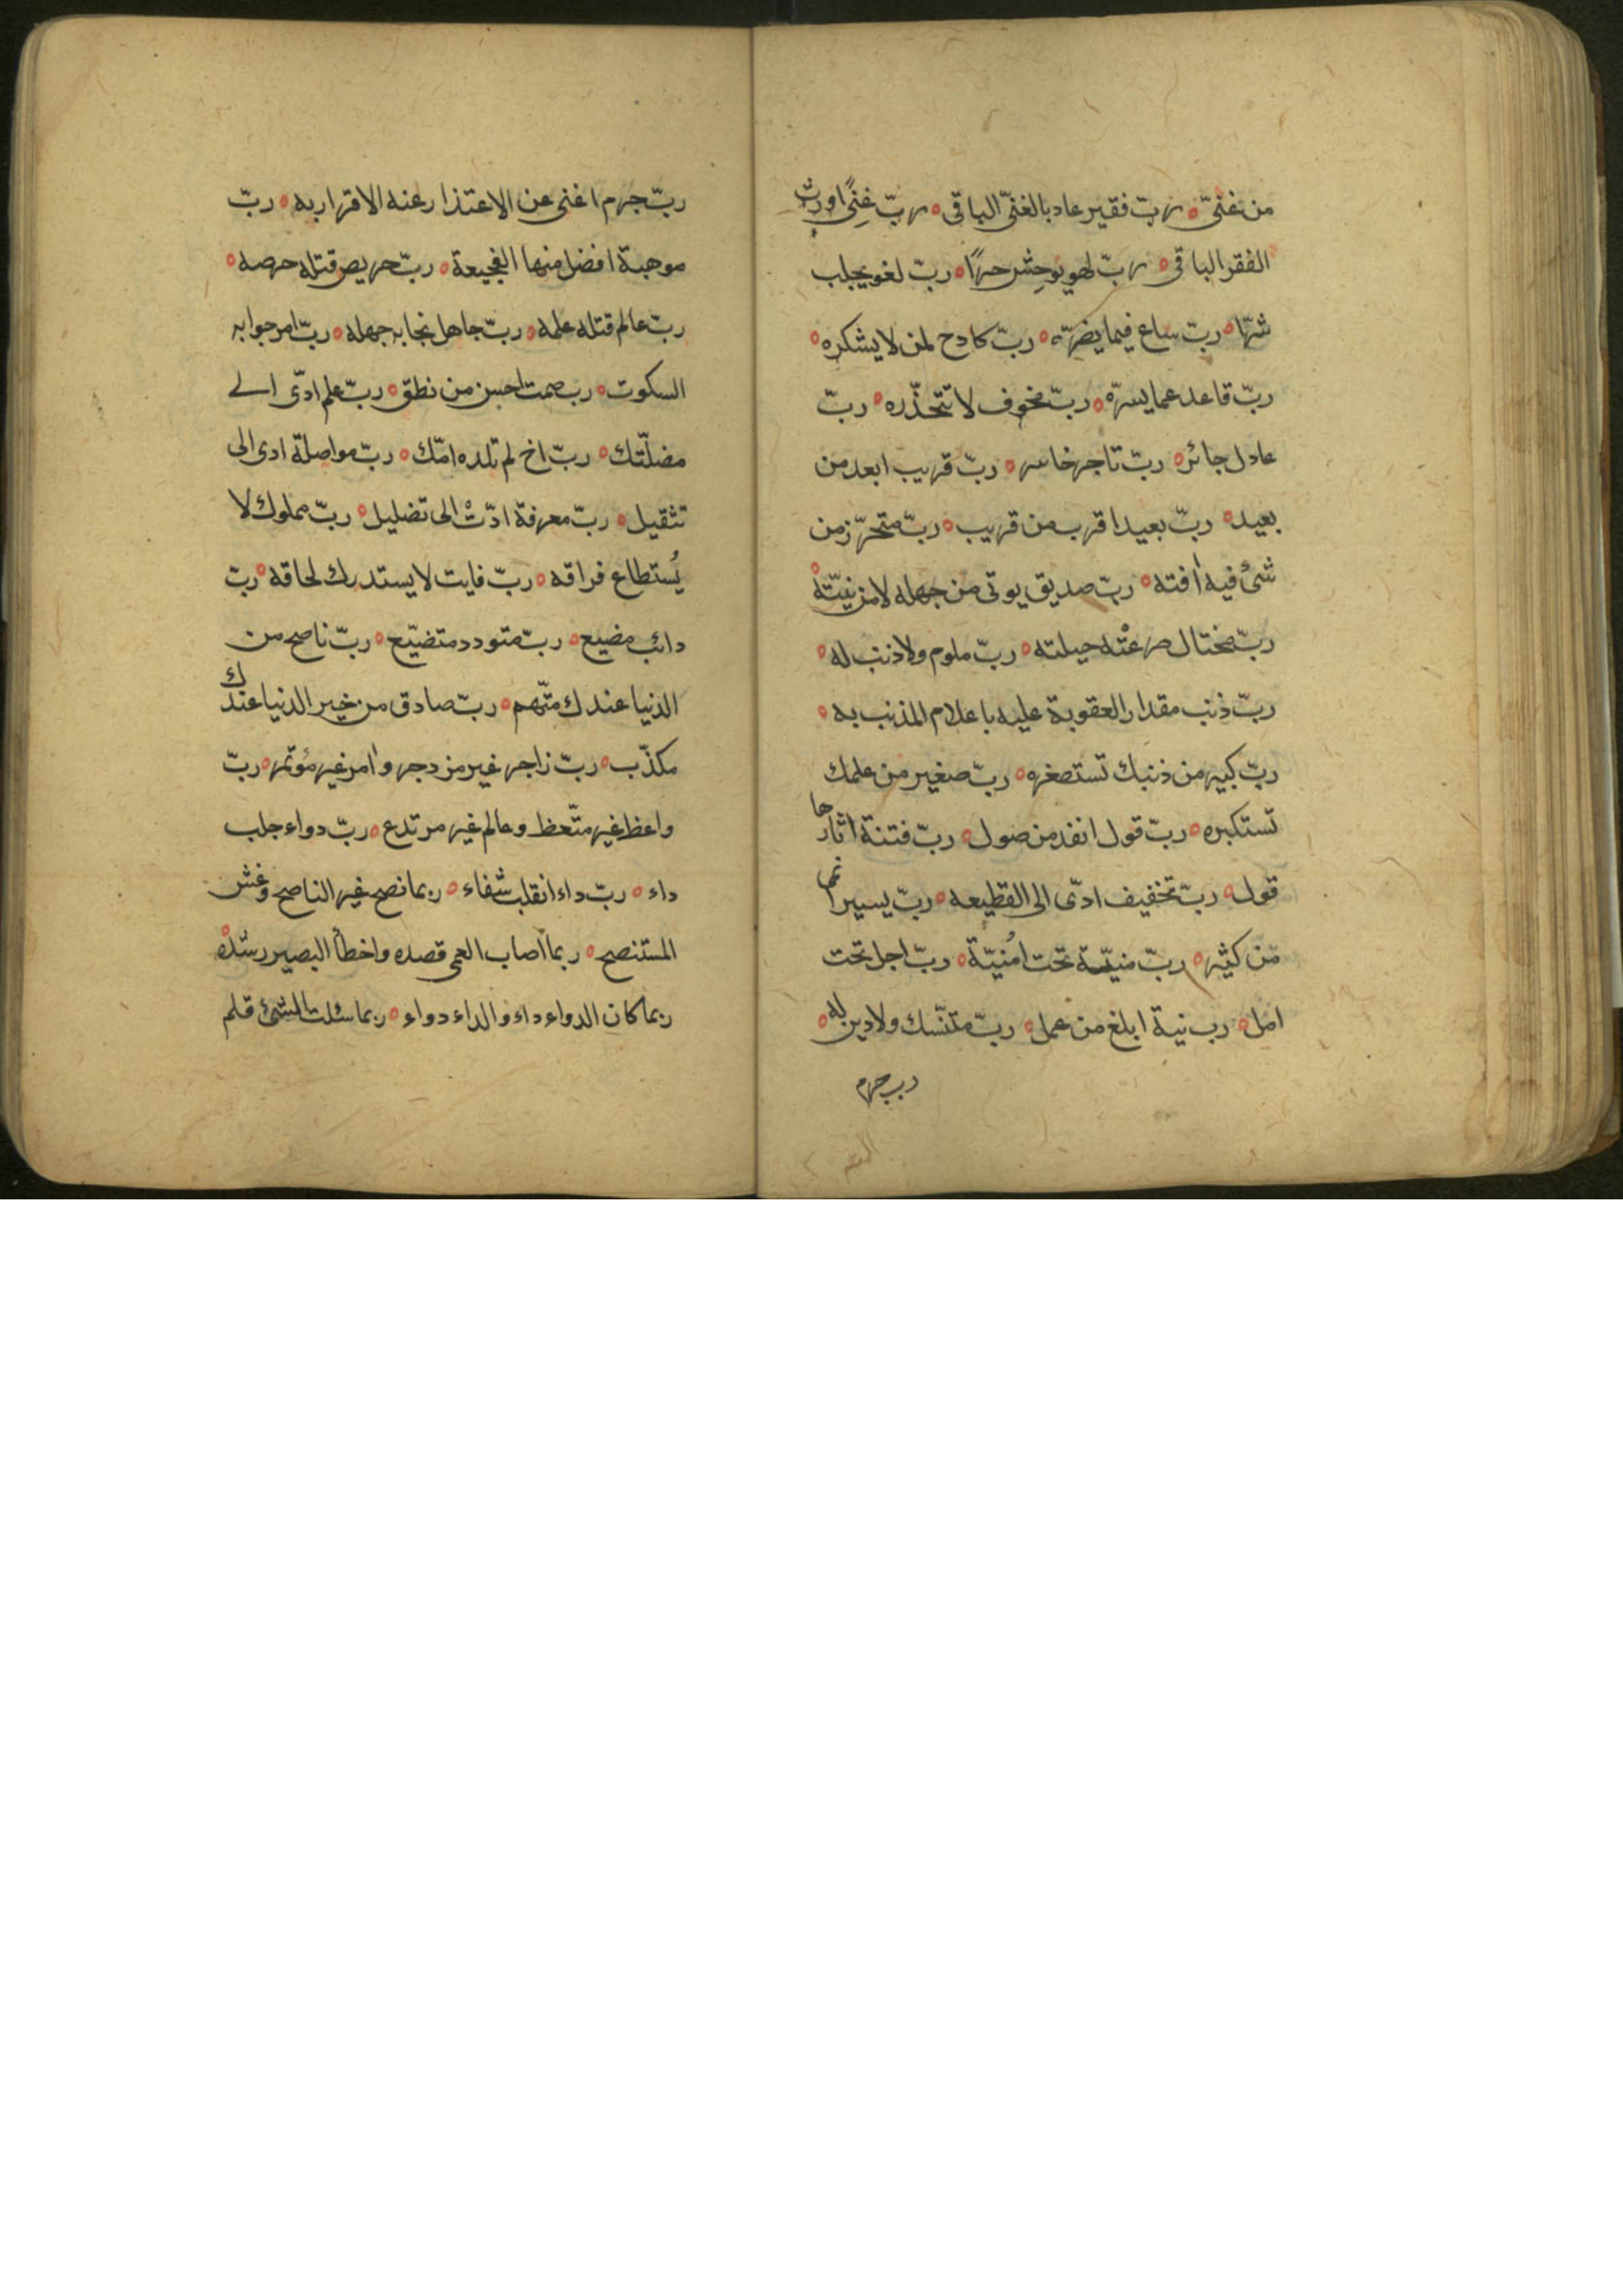 من غنىّ ربّ فقير عاد بالغنىّ الباقى ربّ غِنًى اورث
الفقر الباقى ربّ لهو يوحِش حرًّا ربّ لغو يجلب
شرّا ربّ ساع فيما يضرّه ربّ كادح لمن لا يشكره
ربّ قاعد عما يسرّه ربّ مخوف لا تتحذّره ربّ
عادل جائر ربّ تاجر خاسر ربّ قريب ابعد من
بعيد ربّ بعيد اقرب من قريب ربّ متحرّز من
شئ فيه اٰفته ربّ صديق يوتى من جهله لا من نيّته
ربّ محتال صرعتْه حيلته ربّ ملوم ولا ذنب له
ربّ ذنب مقدار العقوبة عليه باعلام المذنب به
ربّ كبير من ذنبك تستصغره ربّ صغير من علمك
تستكبره ربّ قول انفذ من صول ربّ فتنة اثارها
قول ربّ تخفيف ادّى الى القطيعه ربّ يسير انمى
من كثير ربّ منيّة تحت اُمنيّة ربّ اجل تحت
امل رب نية ابلغ من عمل ربّ متنسّك ولا دين له
رب جرم
ربّ جرم اغنى عن الاعتذار عنه الاقرار به ربّ
موهبة افضل منها الفجيعة ربّ حريص قتله حرصه
ربّ عالم قتله علمه ربّ جاهل نجا به جهله ربّ امر جوابه
السكوت رب صمت احسن من نطق ربّ علم ادّى الے
مضلّتك ربّ اخ لم تلده امّك ربّ مواصلة ادى الى
تثقيل ربّ معرفة ادّتْ الى تضليل ربّ مملوك لا
يُستطاع فراقه ربّ فايت لا يستدرك لحاقه ربّ
دائب مضيع ربّ متودد متضيّع ربّ ناصح من
الدنيا عندك متّهم ربّ صادق من خير الدنيا عندك
مكذّب ربّ زاجر غير مزدجر واٰمر غير مؤتمر ربّ
واعظ غير متّعظ وعالم غير مرتدع ربّ دواء جلب
داء ربّ داء انقلب شفاء ربما نصح غير الناصح وغش
المستنصح ربما اصاب العمى قصده واخطأ البصير رشده
ربما كان الدواء داء والداء دواء ربما سئلت الشئ فلم